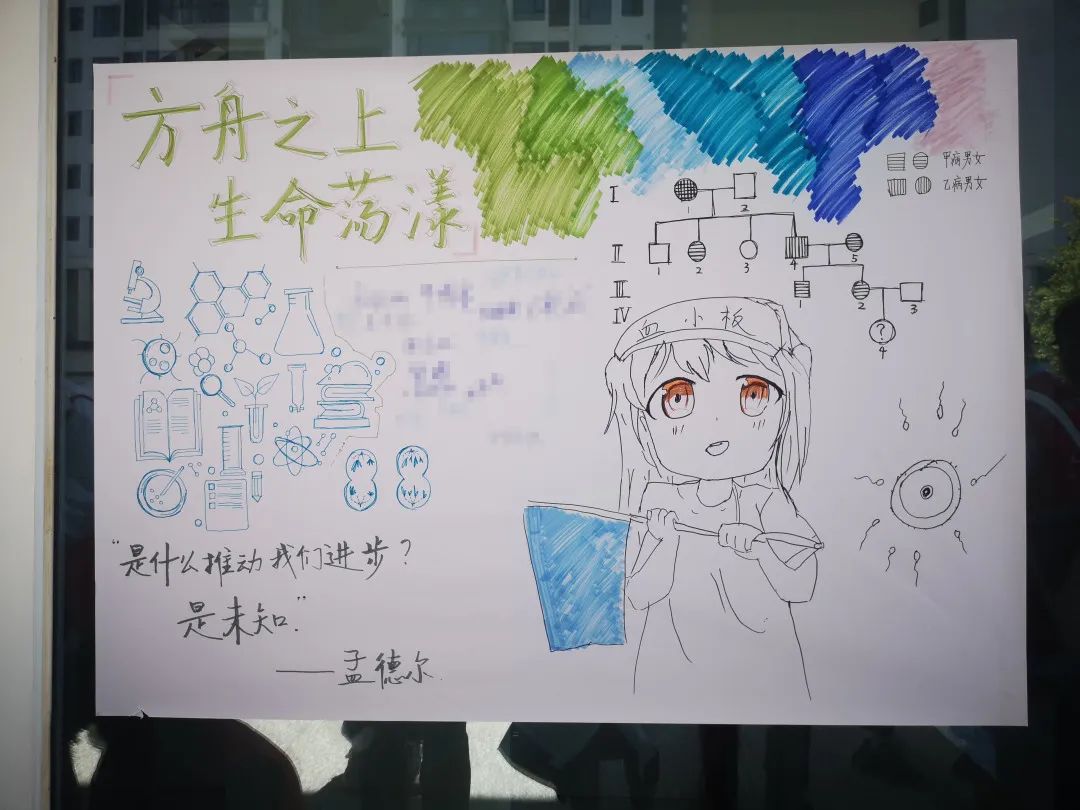 方舟之上
生命荡漾
甲病男女
乙病男女
I
1
2
II
1
2
3
4
5
III
1
2
3
IV
4
?
血小板
"是什么推动我们进步?
是未知."
——孟德尔.